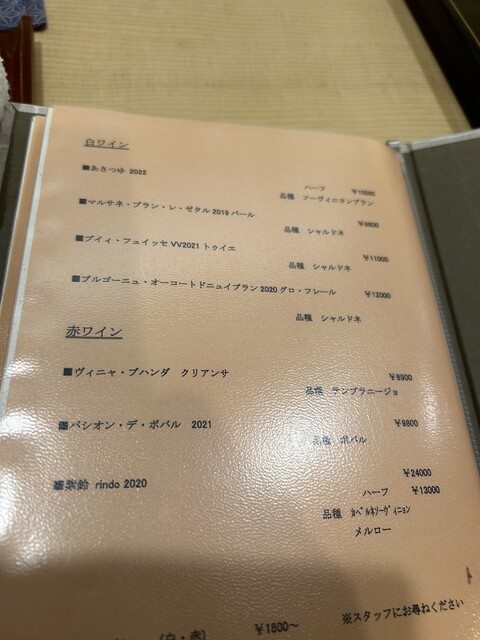 白ワイン
■あさつゆ 2022
ハーフ ¥10000
品種 ソーヴィニヨンブラン
■マルサネ・ブラン・レ・ゼタル2019バール
¥9800
品種 シャルドネ
■プイィ・フュイッセVV2021トゥイエ
¥11000
品種 シャルドネ
■ブルゴーニュ・オーコートドニュイブラン2020グロ・フレール ¥12000
品種 シャルドネ
赤ワイン
■ヴィニャ・ブハンダ クリアンサ
¥8900
品種 テンプラニージョ
■パシオン・デ・ボバル 2021
¥9800
品種 ボバル
■紫鈴 rindo 2020
¥24000
ハーフ ¥13000
品種 カベルネソーヴィニヨン
メルロー
(白・赤) ¥1800～
※スタッフにお尋ねください